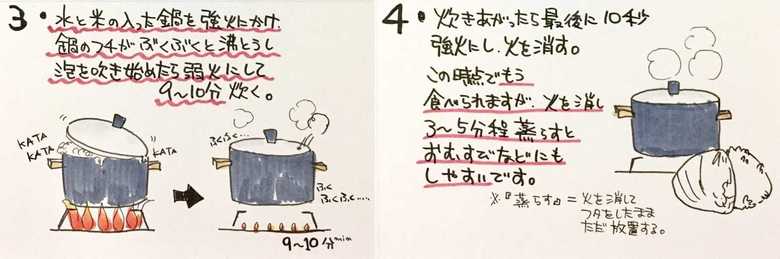 3・水と米の入った鍋を強火にかけ
鍋のフチがぶくぶくと沸とうし
泡を吹き始めたら弱火にして
9〜10分 炊く。
KATA
KATA
KATA
ふくふく…
ふく
ふくふく…
9〜10分min
4・炊きあがったら最後に10秒
強火にし、火を消す。
この時点でもう
食べられますが、火を消し
3〜5分程蒸らすと
おむすびなどにも
しやすいです。
※『蒸らす』=火を消して
フタをしたまま
ただ放置する。